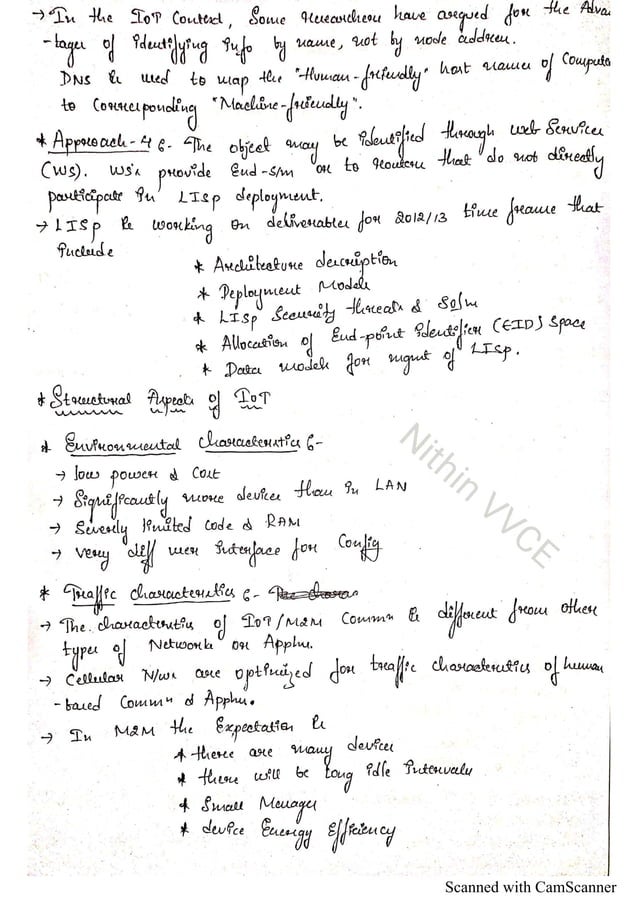 → In the IoT Context, Some researchers have argued for the Adva
-tages of Identifying Info by name, not by node address.
DNS is used to map the "Human-friendly" host names of Computer
to Corresponding "Machine-friendly".
* Approach-4 :- The object may be identified through web Services
(WS). WS's provide End-s/m or to routers that do not directly
participate in LISP deployment.
→ LISP is working on deliverables for 2012/13 time frame that
Include
* Architecture description
* Deployment Models
* LISP Security threats & Sol/n
* Allocation of End-point identifier (EID) space
* Data models for mgmt of LISP.
* Structural Aspects of IoT
* Environmental Characteristics :-
→ low power & Cost
→ Significantly more devices than in LAN
→ Severly limited code & RAM
→ very diff user Interface for Config
* Traffic characteristics :-
→ The characteristics of IoT/M2M Commn is different from other
types of Networks or Appln.
→ Cellular N/ws are optimized for traffic characteristics of human
-based Commn & Appln.
→ In M2M the Expectation is
* there are many devices
* there will be long idle Intervals
* Small Messages
* device Energy Efficiency
Nithin VVCE
Scanned with CamScanner